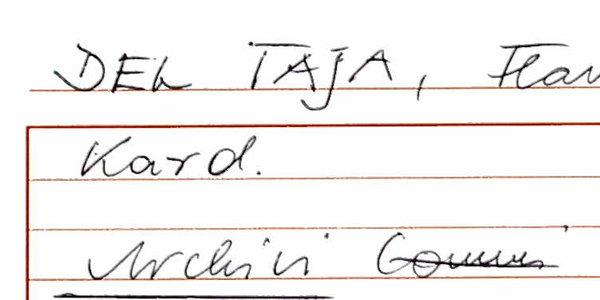 DEL TAJA, Flav
Kard.
Archivi